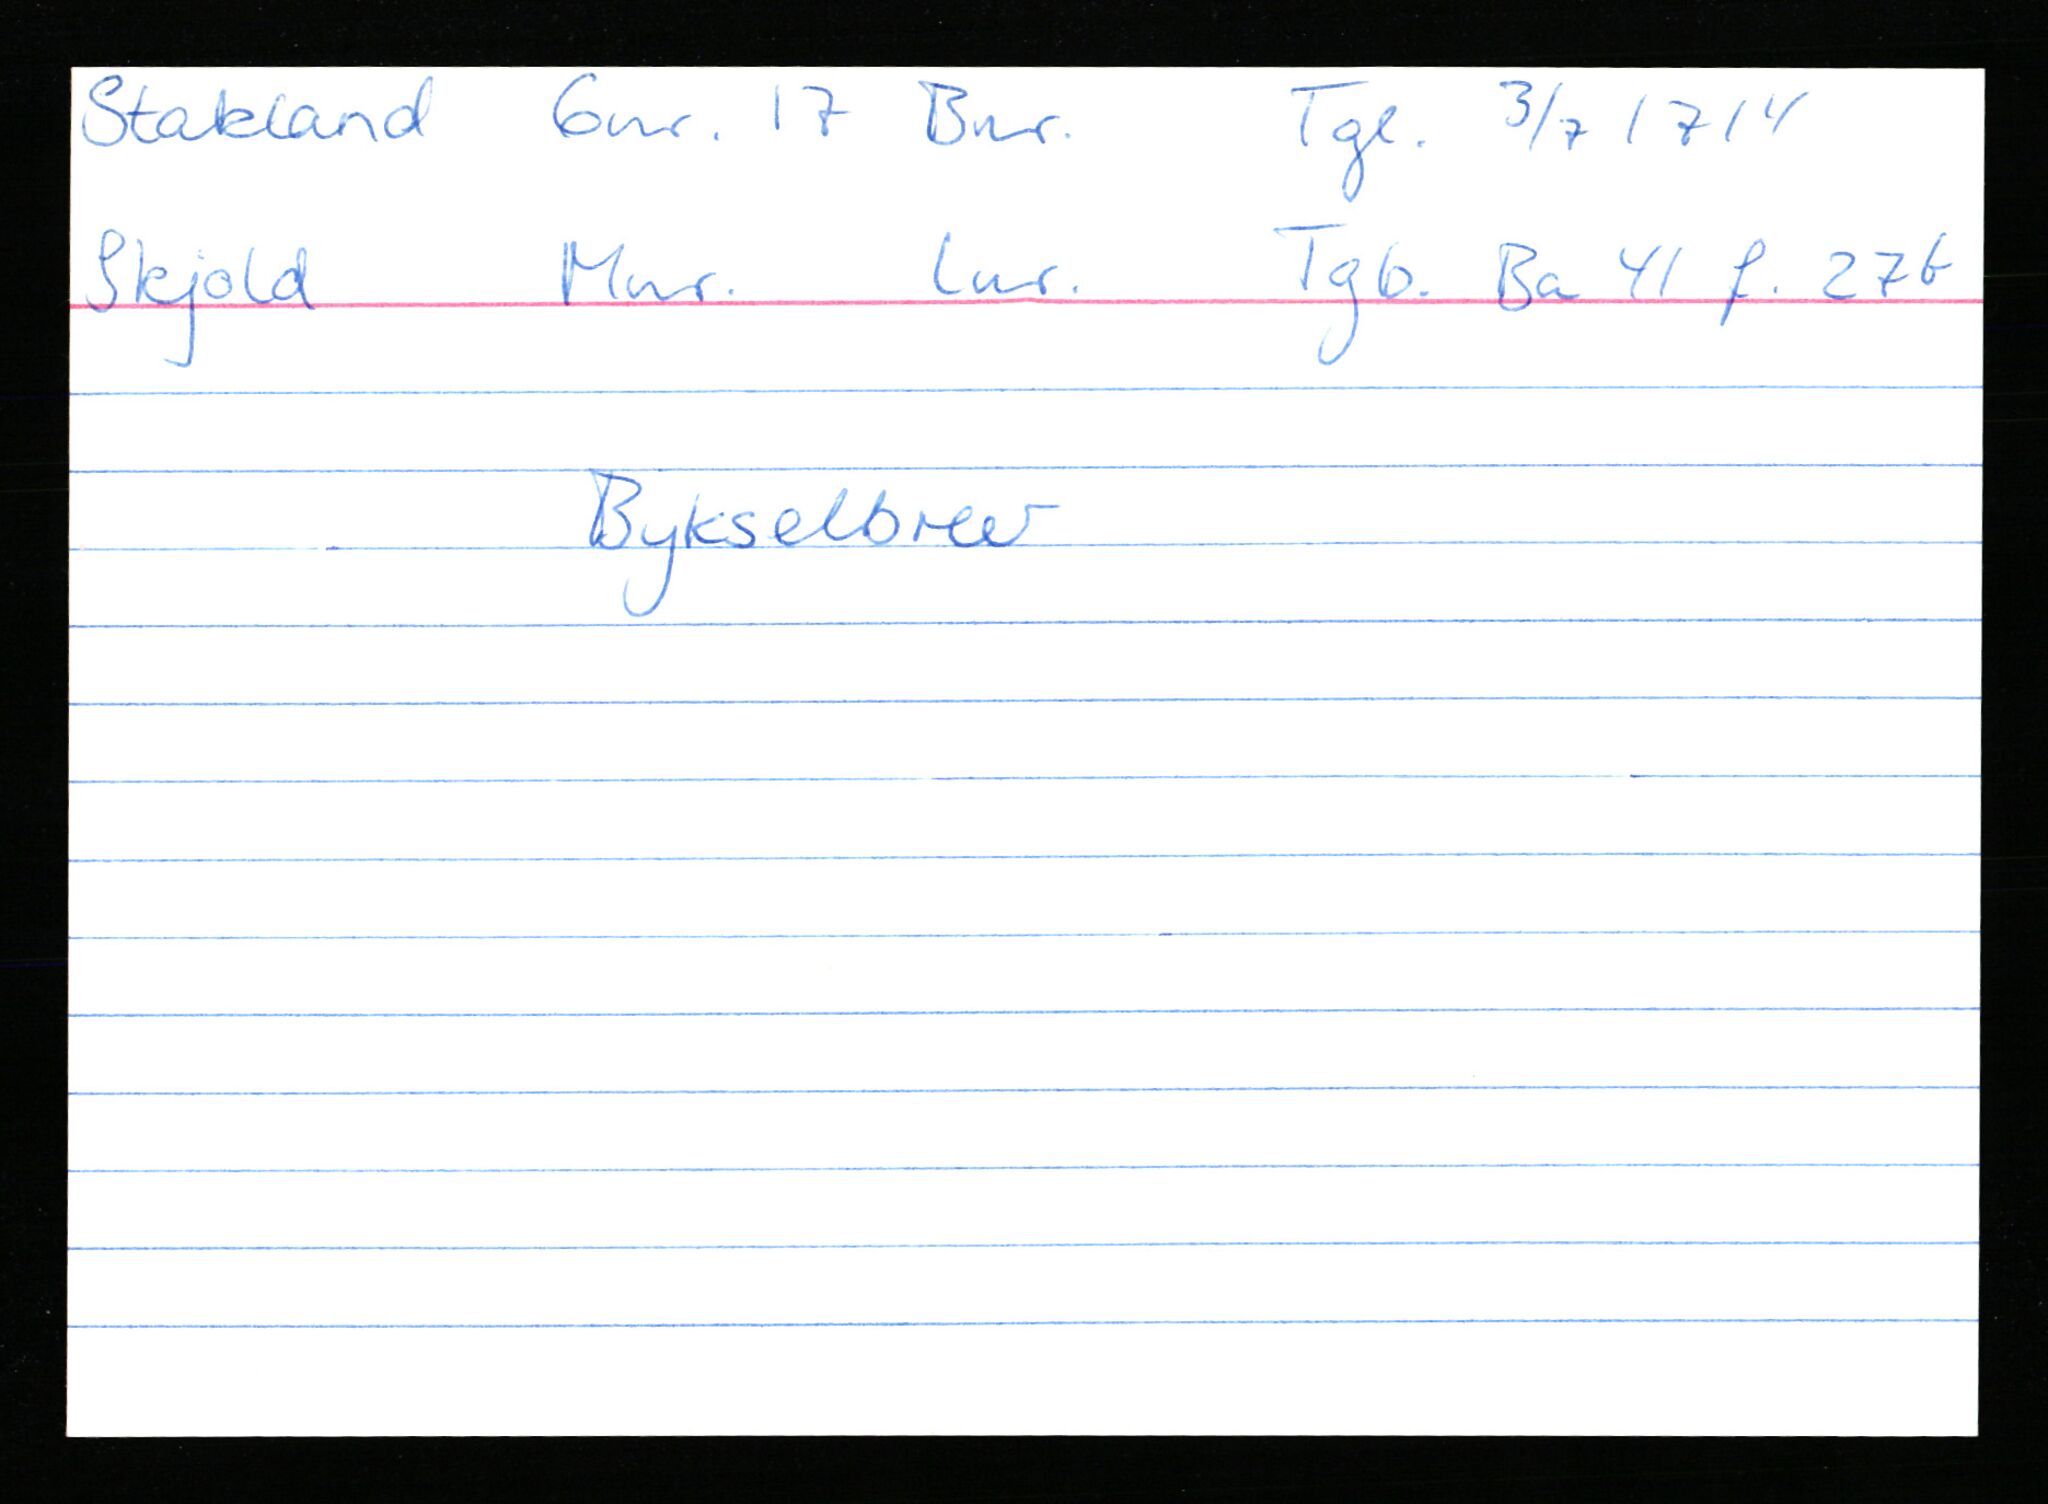 Stakland Gnr. 17 Bnr. Tgl. 3/7 1714
Skjold Mnr. Lnr. Tgb. Ba 41 f. 27b
Bykselbrev